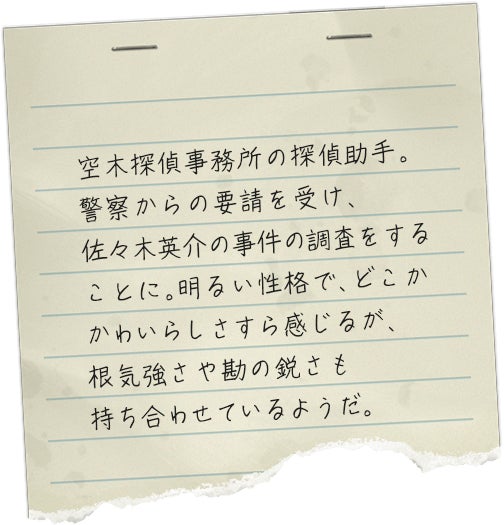 空木探偵事務所の探偵助手。
警察からの要請を受け、
佐々木英介の事件の調査をする
ことに。明るい性格で、どこか
かわいらしさすら感じるが、
根気強さや勘の鋭さも
持ち合わせているようだ。